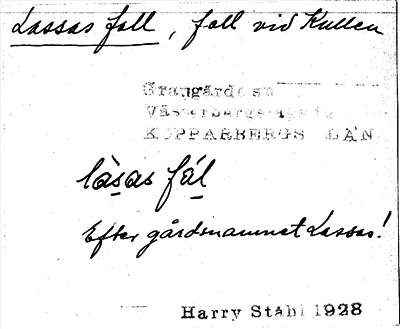 Lassas fall, fall vid Kullen
Grangärde sn
Västerbergslags
KOPPARBERGS LÄN
làsas fál
Efter gårdsnamnet Lassas!
Harry Ståhl 1928